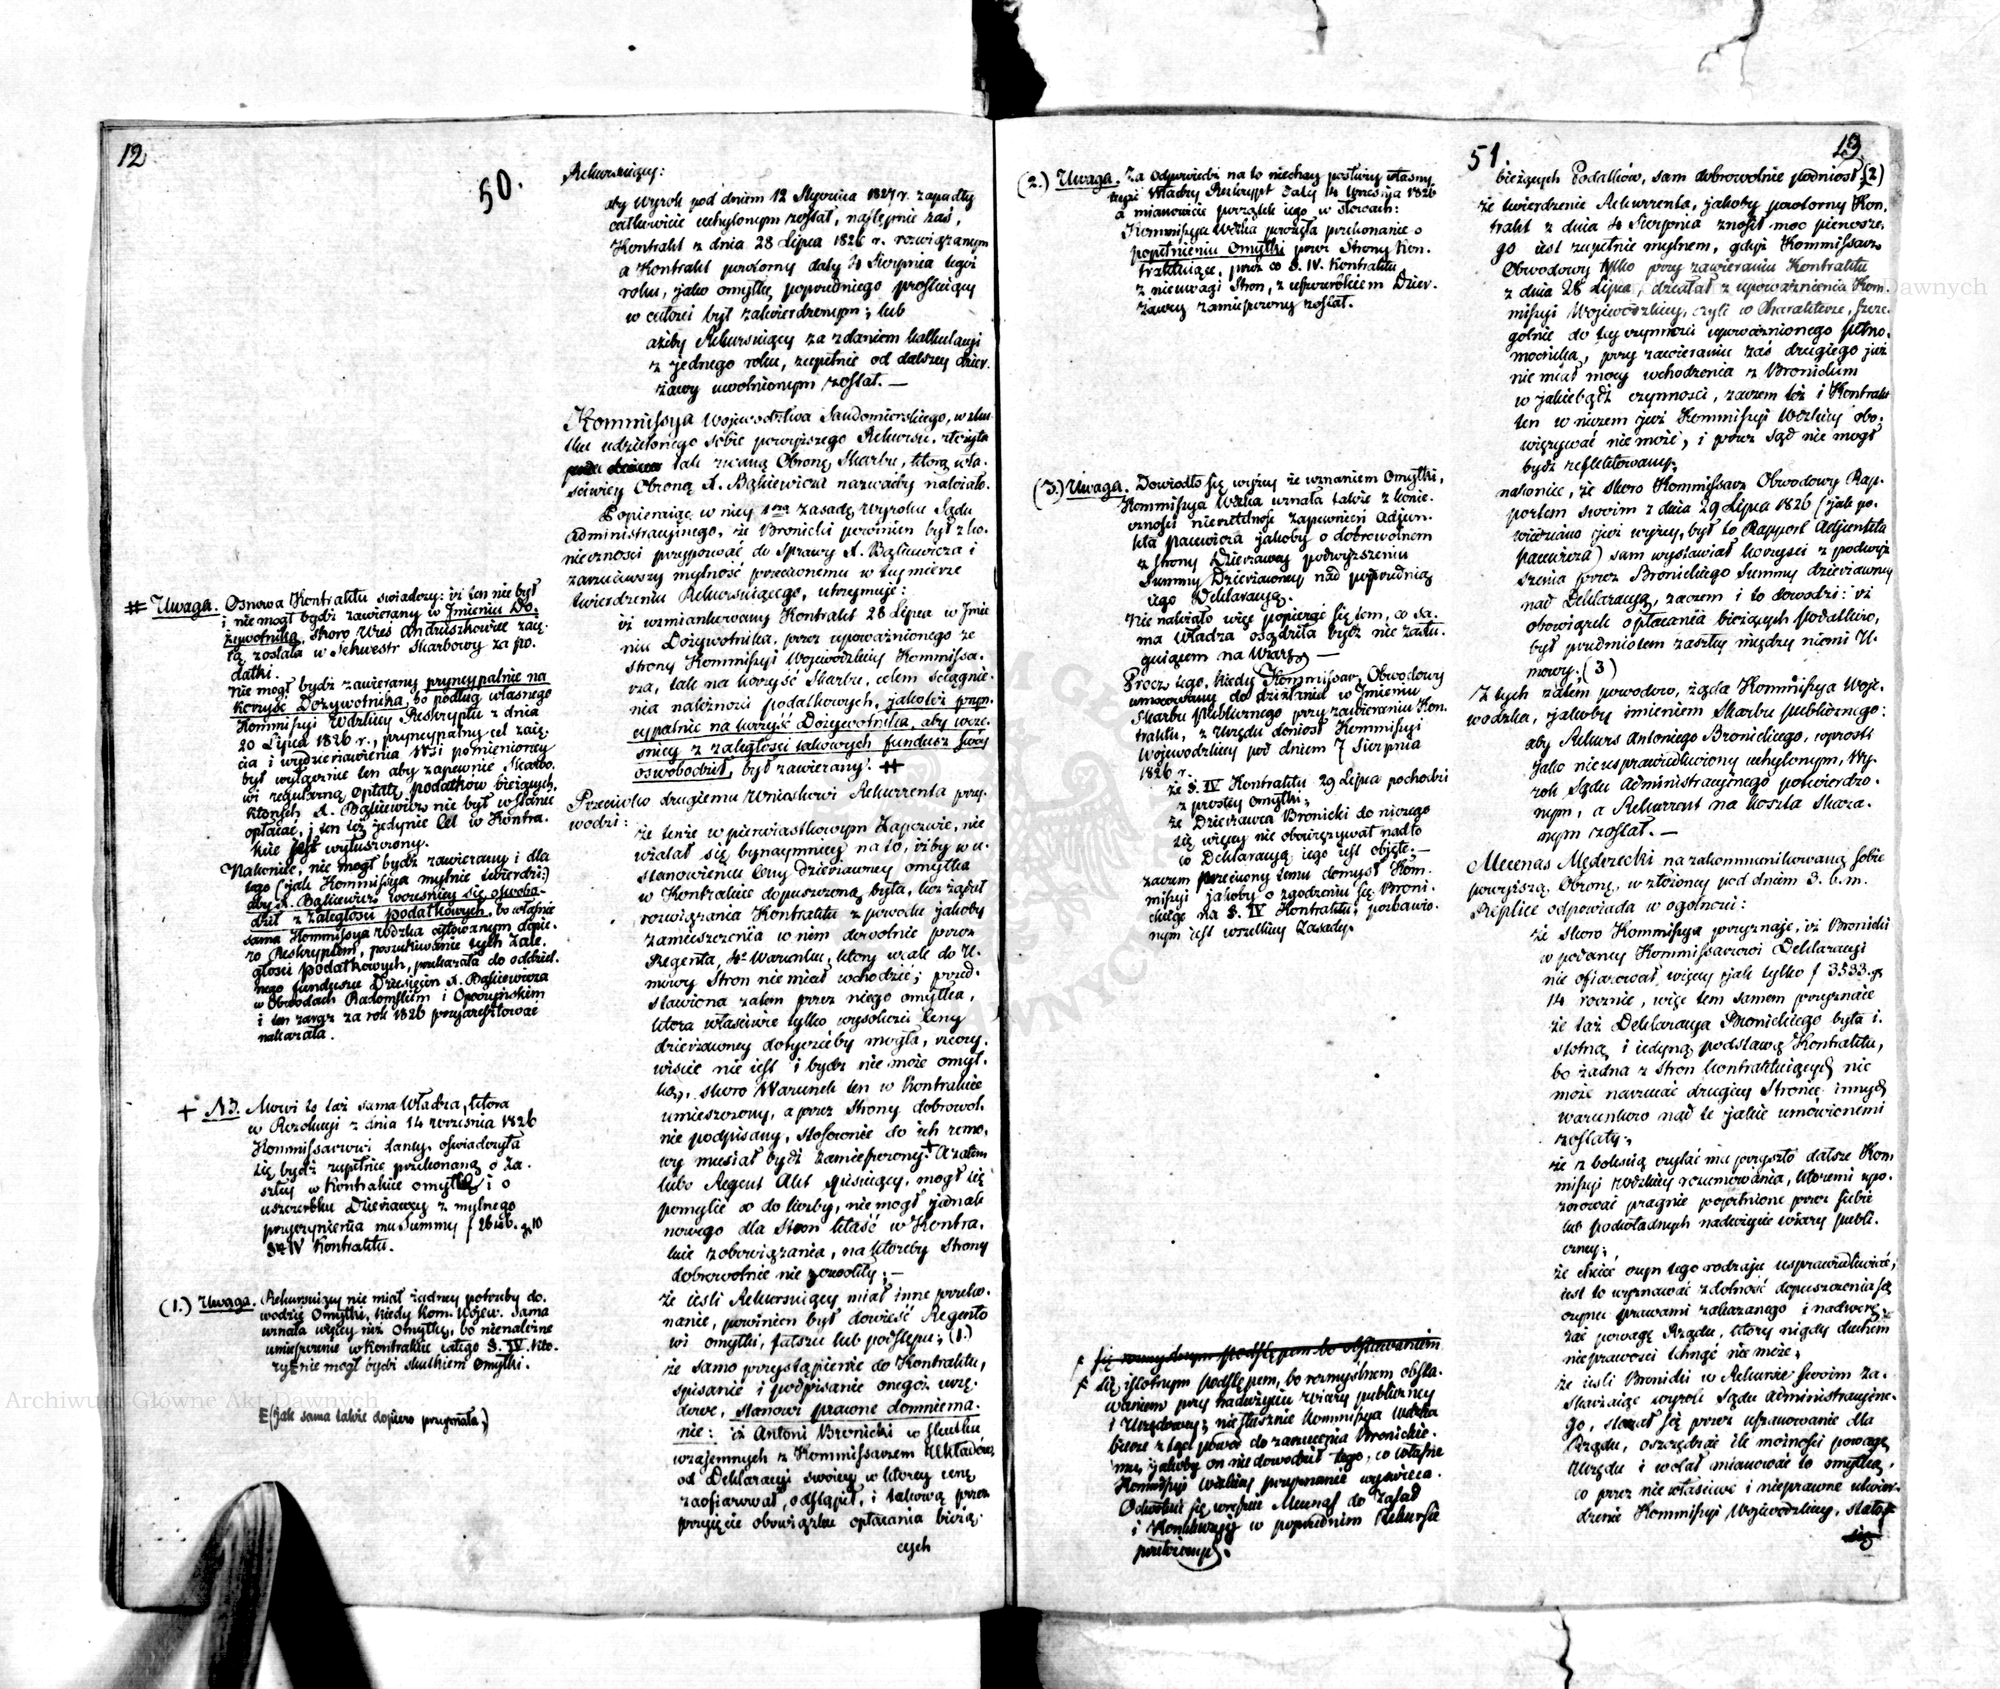 12
50.
Rekursuiący:
aby wyrok pod dniem 12 Stycznia 1827 r. zapadły
całkowicie uchylonym został, najlepnie zaś,
Kontrakt z dnia 28 Lipca 1826 r. rozwiązanym
a Kontrakt powtorny daty 4 Sierpnia tegoż
roku, jako omyłkę poprzedniego prostuiący
w całości był zatwierdzonym; lub
ażeby Rekursuiący za zdaniem kalkulacyi
z jednego roku, zupełnie od dalszey dzier.
żawy uwolnionym został. —
Kommissya Woiewodztwa Sandomierskiego, w skut
ku udzielonego sobie powyższego Rekursu, złożyła
tak zwaną Obronę Skarbu, którą wła.
ściwiey Obroną A. Bąkiewicza nazwaćby należało.
Popieraiąc w niey 1szą zasadę Wyroku Sądu
Administracyjnego, że Bronicki powinien był z ko.
nieczności przypozwać do Sprawy A. Bąkiewicza i
zarzuciwszy mylność przeciwnemu w tey mierze
twierdzeniu Rekursuiącego, utrzymuje:
iż wzmiankowany Kontrakt 28 Lipca w Jmie
niu Dożywotnika, przez upoważnionego ze
strony Kommissyi Woiewodzkiey Kommissa.
rza, tak na korzyść Skarbu, celem ściągnie.
nia należności podatkowych, jakoteż pryn.
cypalnie na korzyść Dożywotnika, aby wcze.
śniey z zaległości takowych fundusz swóy
oswobodził, był zawierany. #
Przeciwko drugiemu Wnioskowi Rekurrenta przy.
wodzi:
że tenże w pierwiastkowym Zapozwie, nie
użalał się bynaymniey na to, iżby w u.
stanowieniu Ceny dzierżawney omyłka
w Kontrakcie dopuszczoną była, lecz żądał
rozwiązania Kontraktu z powodu jakoby
zamieszczenia w nim dowolnie przez
Regenta, 4o Warunku, który wcale do U.
mowy Stron nie miał wchodzić; przed.
stawiona zatem przez niego omyłka,
która właściwie tylko wysokości Ceny
dzierżawney dotyczećby mogła, rzeczy.
wiście nie iest i bydź nie może omył.
ką, skoro Warunek ten w Kontrakcie
umieszczony, a przez Strony dobrowol.
nie podpisany, stosownie do ich zmo.
wy musiał bydź zamieszczony.+ A zatem
lubo Regent Akt piszący, mogł się
pomylić co do liczby, nie mogł jednak
nowego dla Stron kłaść w Kontra.
kcie zobowiązania, na któreby Strony
dobrowolnie nie zezwoliły; —
że ieśli Rekursuiący miał inne przeko.
nanie, powinien był dowieść Regento
wi omyłki, fałszu lub podstępu; (1.)
że samo przystąpienie do Kontraktu,
spisanie i podpisanie onegóż urzę.
dowe, stanowi prawne domniema.
nie: iż Antoni Bronicki w skutku
wzajemnych z Kommissarzem Układów,
od Deklaracyi swoiey w którey cenę
zaofiarował, odstąpił, i takową przez
przyięcie obowiązku opłacania bieżą.
cych
# Uwaga. Osnowa Kontraktu świadczy: iż ten nie był
i nie mogł bydź zawierany w Jmieniu Do.
żywotnika, skoro Wieś Andruszkowice zaię.
tą została w Sekwestr Skarbowy za po.
datki.
Nie mogł bydź zawierany pryncypalnie na
korzyść Dożywotnika, bo podług własnego
Kommissyi Wdzkiey Reskryptu z dnia
20 Lipca 1826 r., pryncypalny cel zaię.
cia i wydzierżawienia Wsi pomienioney
był wyłącznie ten aby zapewnić Skarbo.
wi regularną opłatę podatków bieżących,
których A. Bąkiewicz nie był w stanie
opłacać, i ten też jedynie Cel w Kontra.
kcie jest wytłuszczony.
Nakoniec, nie mogł bydź zawierany i dla
tego (jak Kommissya mylnie twierdzi:)
aby A. Bąkiewicz wcześniey się oswobo.
dził z zaległości podatkowych, bo właśnie
sama Kommissya Wdzka cytowanym dopie.
ro Reskryptem, poszukiwanie tych zale.
głości podatkowych, przekazała do oddziel.
nego funduszu Dziesięcin A. Bąkiewicza
w Obwodach Radomskim i Opoczyńskim
i ten zaraz za rok 1826 przyaresztować
nakazała.
+ NB. Mowi to taż sama Władza, która
w Rezolucyi z dnia 14 Września 1826
Kommissarzowi daney, oświadczyła
się bydź zupełnie przekonaną o za.
szłej w Kontrakcie omyłce i o
uszczerbku Dzierżawcy z mylnego
przyczynienia mu Summy
§ IV Kontraktu.
(1.) Uwaga. Rekursuiący nie miał żadney potrzeby do.
wodzić Omyłki, kiedy Kom. Wojew. Sama
uznała więcey niż Omyłkę, bo nienależne
umieszczenie w Kontrakcie całego §. IV. któ.
ry nie mogł bydź skutkiem Omyłki.
(jak sama także dopiero przyznała;)
51
13
(2.) Uwaga. Za odpowiedź na to niechay posłuży własny
teyże Władzy Reskrypt daty 14 Września 1826
a mianowicie początek iego w słowach:
Kommissya Wdzka powzięła przekonanie o
popełnieniu Omyłki przez Strony Kon.
traktuiące, przez co §. IV. Kontraktu
z nieuwagi Stron, z uszczerbkiem Dzier.
żawcy zamieszczony został.
(3.) Uwaga. Dowiodło się wyżey że uznaniem Omyłki,
Kommissya Wdzka uznała także z konie.
czności nierzetelność zapewnień Adjun.
kta Pacewicza jakoby o dobrowolnem
z strony Dzierżawcy podwyższeniu
Summy Dzierżawney nad poprzednią
iego Deklaracyą.
Nie należało więc popierać się tem, co sa.
ma Władza osądziła bydź nie zasłu.
guiącem na Wiarę. —
Procz tego, kiedy Kommissarz Obwodowy
umocowany do działania w Jmieniu
Skarbu Publicznego przy zawieraniu Kon.
traktu, z Urzędu doniosł Kommissyi
Woiewodzkiey pod dniem 7 Sierpnia
1826 r.
że §. IV Kontraktu 29 Lipca pochodzi
z prostey Omyłki;
że Dzierżawca Bronicki do niczego
się więcey nie obowiązywał nad to
co Deklaracyą iego iest objęte. —
zatem przeciwny temu domysł Kom.
missyi jakoby o zgodzeniu się Broni.
ckiego na §. IV Kontraktu, pozbawio.
nym iest wszelkiey Zasady.
się, istotnym podstępem, bo rozmyślnem obsta.
waniem przy nadużyciu wiary publiczney
i Urzędowey; niesłusznie Kommissya Wdzka
bierze z tąd powód do zarzucenia Bronickie.
mu, jakoby on nie dowodził tego, co właśnie
Kommissyi Wdzkiey przyznanie wyświeca.
Odwołał się wreszcie Mecenas do Zasad
i Konkluzyi w poprzednim Rekursie
przytoczonych.
bieżących Podatków, sam dobrowolnie podniosł (2)
że twierdzenie Rekurrenta, jakoby powtorny Kon.
trakt z dnia 4 Sierpnia znosił moc pierwsze.
go iest zupełnie mylnem, gdyż Kommissarz
Obwodowy tylko przy zawieraniu Kontraktu
z dnia 28 Lipca, działał z upoważnienia Kom.
missyi Woiewódzkiey, czyli w Charakterze, szcze.
gólnie do tey czynności upoważnionego pełno.
mocnika, przy zawieraniu zaś drugiego już
nie miał mocy wchodzenia z Bronickim
w jakiebądź czynności, zaczem też i Kontrakt
ten w niczem już Kommissyi Wdzkiey obo.
więzywać nie może, i przez Sąd nie mogł
bydź reflektowany;
nakoniec, że skoro Kommissarz Obwodowy Rap.
portem swoim z dnia 29 Lipca 1826 (jak po.
wiedziano iuż wyżey, był to Rapport Adjunkta
Pacewicza) sam wystawiał korzyści z podwyż
szenia przez Bronickiego Summy dzierżawney
nad Deklaracyą, zaczem i to dowodzi: iż
obowiązek opłacania bieżących podatków,
był przedmiotem zaszłey między niemi U.
mowy. (3)
Z tych zatem powodow, żąda Kommissya Woie.
wodzka, jakoby imieniem Skarbu publicznego:
aby Rekurs Antoniego Bronickiego, wprost
jako nieusprawiedliwiony uchylonym, Wy.
rok Sądu Administracyjnego potwierdzo.
nym, a Rekurrent na koszta skaza.
nym został. —
Mecenas Mędrzecki na zakommunikowaną sobie
powyższą Obronę, w złożoney pod dniem 3. b.m.
Replice odpowiada w ogólności:
że skoro Kommissya przyznaje, iż Bronicki
w podaney Kommissarzowi Deklaracyi
nie ofiarował więcey jak tylko f 3533. gr
14 rocznie, więc tem samem przyznaie
że taż Deklaracya Bronickiego była i.
stotną i iedyną podstawą Kontraktu,
bo żadna z Stron kontraktuiących nie
może narzucać drugiey Stronie innych
warunków nad te jakie umowionemi
zostały;
że z boleścią czytać mu przyszło dalsze Kom
missyi Wdzkiey rozumowania, któremi upo.
zorować pragnie popełnione przez siebie
lub podwładnych nadużycie wiary publi.
czney;
że chcieć czyn tego rodzaju usprawiedliwiać,
iest to wyznawać zdolność dopuszczenia się
czynu prawami zakazanego i nadwerę.
żać powagę Rządu, który nigdy duchem
nieprawości tchnąć nie może;
że ieśli Bronicki w Rekursie swoim za.
skarżaiąc wyrok Sądu Administracyjne.
go, starał się przez uszanowanie dla
Rządu, oszczędzać ile możności powagę
Urzędu i wolał mianować to omyłką,
co przez niewłaściwe i nieprawne utwier.
dzenie Kommissyi Woiewodzkiey, stało
się